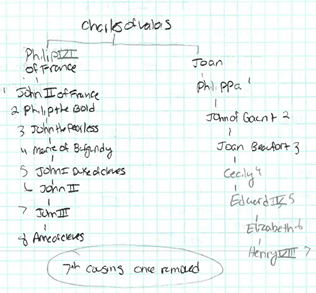 Charles of Valois
Philip VI
of France
1 John II of France
2 Philip the Bold
3 John the Fearless
4 Marie of Burgundy
5 John I Duke of cleves
6 John II
7 John III
8 Anne of cleves
Joan
Philippa 1
John of Gaunt 2
Joan Beaufort 3
Cecily 4
Edward IV 5
Elizabeth 6
Henry VIII 7
7th cousins once removed